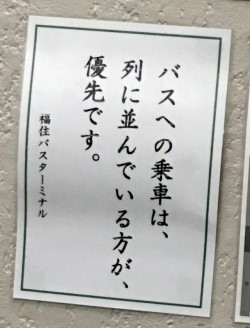 バスへの乗車は、
列に並んでいる方が、
優先です。
福住バスターミナル